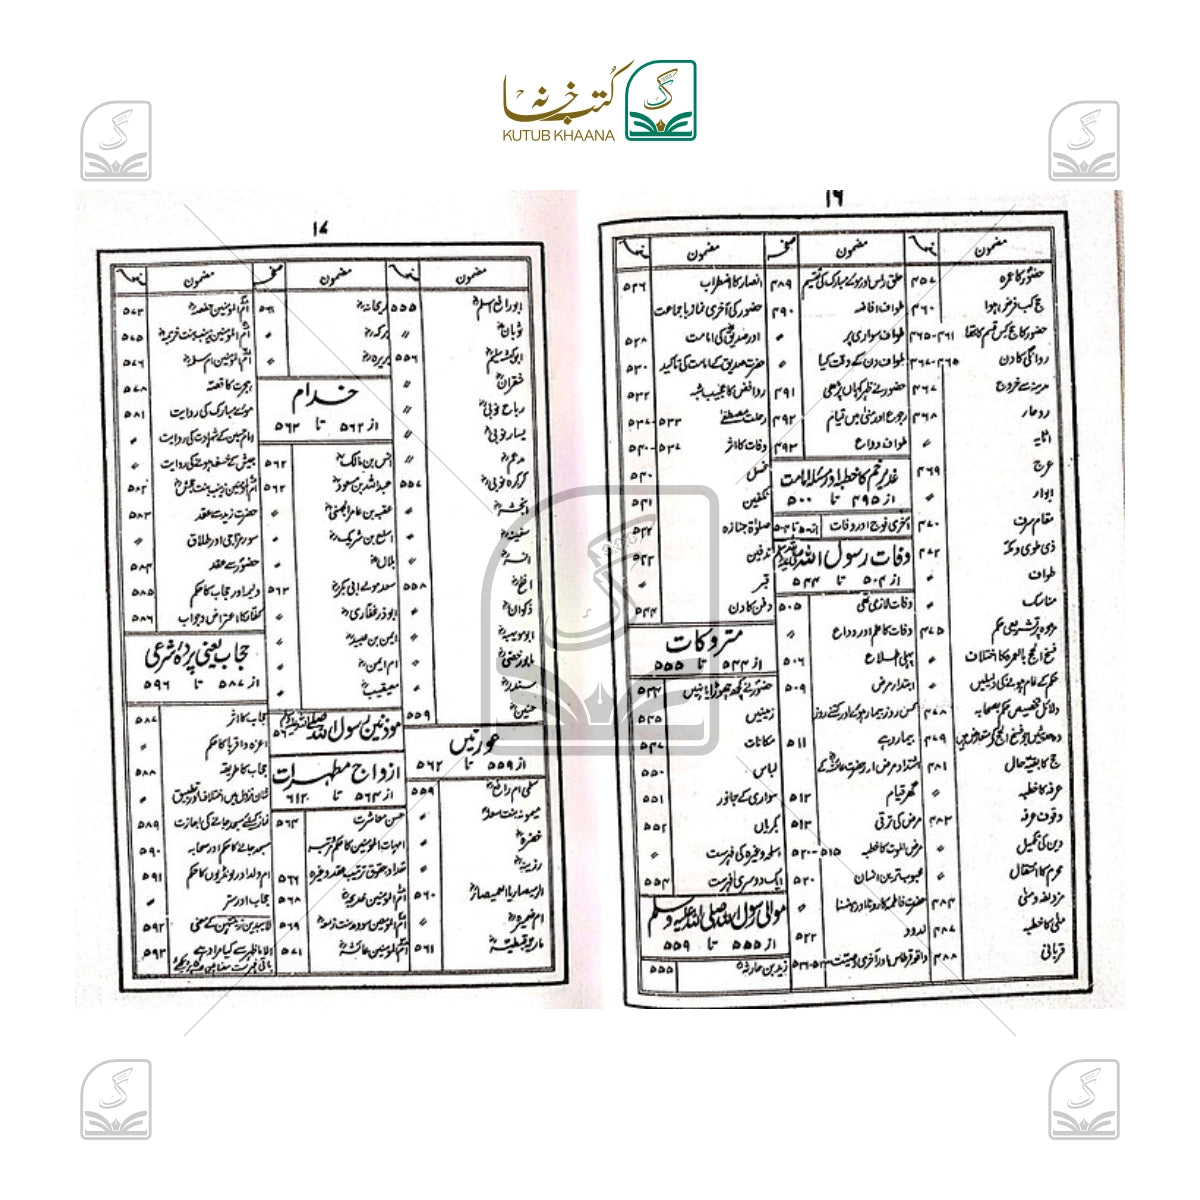 کُتب خانہ
KUTUB KHAANA
۱۶
مضمون
صفحہ
مضمون
صفحہ
مضمون
صفحہ
حضورؐ کا عمرہ
حج کب فرض ہوا
حضورؐ کا حج کس قسم کا تھا
روانگی کا دن
مدینہ سے خروج
روحار
اثایہ
عرج
ابوار
مقام سرف
ذی طویٰ و مکہ
طواف
مناسک
فسخ الحج بالعمرہ کا اختلاف
حکم کے عام ہونے کی دلیلیں
دلائل تخصیص حکم بصحابہ
حج کا بقیہ حال
عرفہ کا خطبہ
وقوف عرفہ
دین کی تکمیل
محرم کا انتقال
مزدلفہ و منیٰ
منیٰ کا خطبہ
قربانی
۴۵۷
۴۶۰
۴۶۱-۴۶۵
۴۶۵-۴۶۷
۴۶۷
۴۶۸
〃
۴۶۹
〃
۴۷۰
۴۷۲
〃
〃
۴۷۵
〃
〃
۴۷۸
۴۷۹
۴۸۱
〃
۴۸۳
۴۸۴
۴۸۷
۴۸۸
حلق راس اور موئے مبارک کی تقسیم
طواف افاضہ
طواف سواری پر
طواف دن کے وقت کیا
حضورؐ نے ظہر کہاں پڑھی
رجوع اور منیٰ میں قیام
طواف وداع
غدیر خم کا خطبہ اور مسئلہ امامت
از ۴۹۵ تا ۵۰۰
آخری فوج اور وفات
وفات رسول اللہ صلی اللہ علیہ وسلم
از ۵۰۴ تا ۵۴۴
وفات لازمی تھی
وفات کا علم اور وداع
پہلی اطلاع
ابتدار مرض
بیمار رہے
گھر قیام
مرض کی ترقی
مرض الموت کا خطبہ
محبوب ترین انسان
حضرت فاطمہؓ کا رونا اور ہنسنا
لدود
واقعہ قرطاس اور آخری وصیت
۴۸۹
۴۹۰
〃
〃
۴۹۱
۴۹۲
۴۹۳
۵۰۵
〃
۵۰۶
۵۰۹
۵۱۱
۵۱۲
۵۱۳
۵۱۵-۵۲۰
۵۲۰
〃
۵۲۲
انصار کا اضطراب
حضور کی آخری نماز باجماعت
اور صدیقؓ کی امامت
حضرت صدیق کے امامت کی تاکید
روافض کا عجیب شبہ
رحلت مصطفےٰ
وفات کا اثر
غسل
تکفین
صلوٰۃ جنازہ
تدفین
قبر
دفن کا دن
متروکات
از ۵۴۴ تا ۵۵۵
حضورؐ نے کچھ چھوڑا یا نہیں
زمینیں
مکانات
لباس
سواری کے جانور
بکریاں
اسلحہ وغیرہ کی فہرست
ایک دوسری فہرست
موالی رسول اللہ صلی اللہ علیہ وسلم
از ۵۵۵ تا ۵۵۹
زید بن حارثہؓ
۵۲۶
۵۲۸
۵۳۰
۵۳۲
۵۴۰
۵۴۱
〃
۵۴۴
۵۴۵
۵۴۷
۵۵۰
۵۵۱
۵۵۲
〃
۵۵۴
۵۵۵
۱۷
مضمون
صفحہ
مضمون
صفحہ
مضمون
صفحہ
ابو رافع اسلمؓ
ثوبانؓ
ابو کبشہ سلیمؓ
شقرانؓ
رباح نوبیؓ
یسار نوبیؓ
مدعمؓ
کرکرہ نوبیؓ
انجشہؓ
سفینہؓ
انسہؓ
افلحؓ
ذکوانؓ
ابو مویہبہؓ
سندرؓ
حنینؓ
عورتیں
از ۵۵۹ تا ۵۶۲
سلمیٰ ام رافعؓ
میمونہ بنت سعدؓ
خضرہؓ
رزینہؓ
ام ضمیرہؓ
ماریہ قبطیہؓ
۵۵۵
〃
۵۵۶
〃
〃
〃
〃
۵۵۷
〃
〃
〃
۵۵۸
〃
〃
۵۵۹
۵۵۹
〃
〃
۵۶۰
〃
۵۶۱
ریحانہؓ
برکہؓ
بریرہؓ
خدام
از ۵۶۲ تا ۵۶۳
انس بن مالکؓ
عبداللہ بن مسعودؓ
عقبہ بن عامر الجہنیؓ
اسلع بن شریکؓ
بلالؓ
سعد مولے ابی بکرؓ
ابوذر غفاریؓ
ایمن بن عبیدؓ
ام ایمنؓ
معیقیبؓ
موذنین رسول اللہ صلی اللہ علیہ وسلم
ازواج مطہرات
از ۵۶۴ تا ۶۱۲
حسن معاشرت
امہات المومنین کا حکم و مرتبہ
تعداد حقوق ترتیب عقد وغیرہ
ام المومنین خدیجہؓ
ام المومنین سودہ بنت زمعہؓ
ام المومنین عائشہؓ
۵۶۱
〃
〃
۵۶۲
۵۶۲
〃
〃
〃
۵۶۳
〃
〃
〃
〃
۵۶۴
۵۶۶
۵۶۸
۵۶۹
۵۷۱
ام المومنین حفصہؓ
ام المومنین زینب بنت خزیمہؓ
ام المومنین ام سلمہؓ
ہجرت کا قصہ
موئے مبارک کی روایت
امام حسین کے شہادت کی روایت
جیش کے خسف ہونے کی روایت
ام المومنین زینب بنت جحشؓ
حضرت زید سے عقد
سوء مزاجی اور طلاق
حضورؐ سے عقد
ولیمہ اور حجاب کا حکم
کفار کا اعتراض و جواب
حجاب یعنی پردہ شرعی
از ۵۸۷ تا ۵۹۶
حجاب کا اثر
اعزہ و اقربا کا حکم
حجاب کا طریقہ
شان نزول میں اختلاف اور تطبیق
نماز کیلئے مسجد جانے کی اجازت
مسجد جانے کا حکم اور صحابہ
ام ولد اور لونڈیوں کا حکم
حجاب اور ستر
لایبدین زینتہن کے معنی
الا ما ظہر سے کیا مراد ہے
۵۷۳
۵۷۵
۵۷۶
۵۷۸
۵۸۱
〃
〃
۵۸۲
۵۸۳
〃
۵۸۴
۵۸۵
۵۸۶
۵۸۷
〃
۵۸۸
〃
۵۸۹
۵۹۰
۵۹۱
〃
۵۹۲
۵۹۳